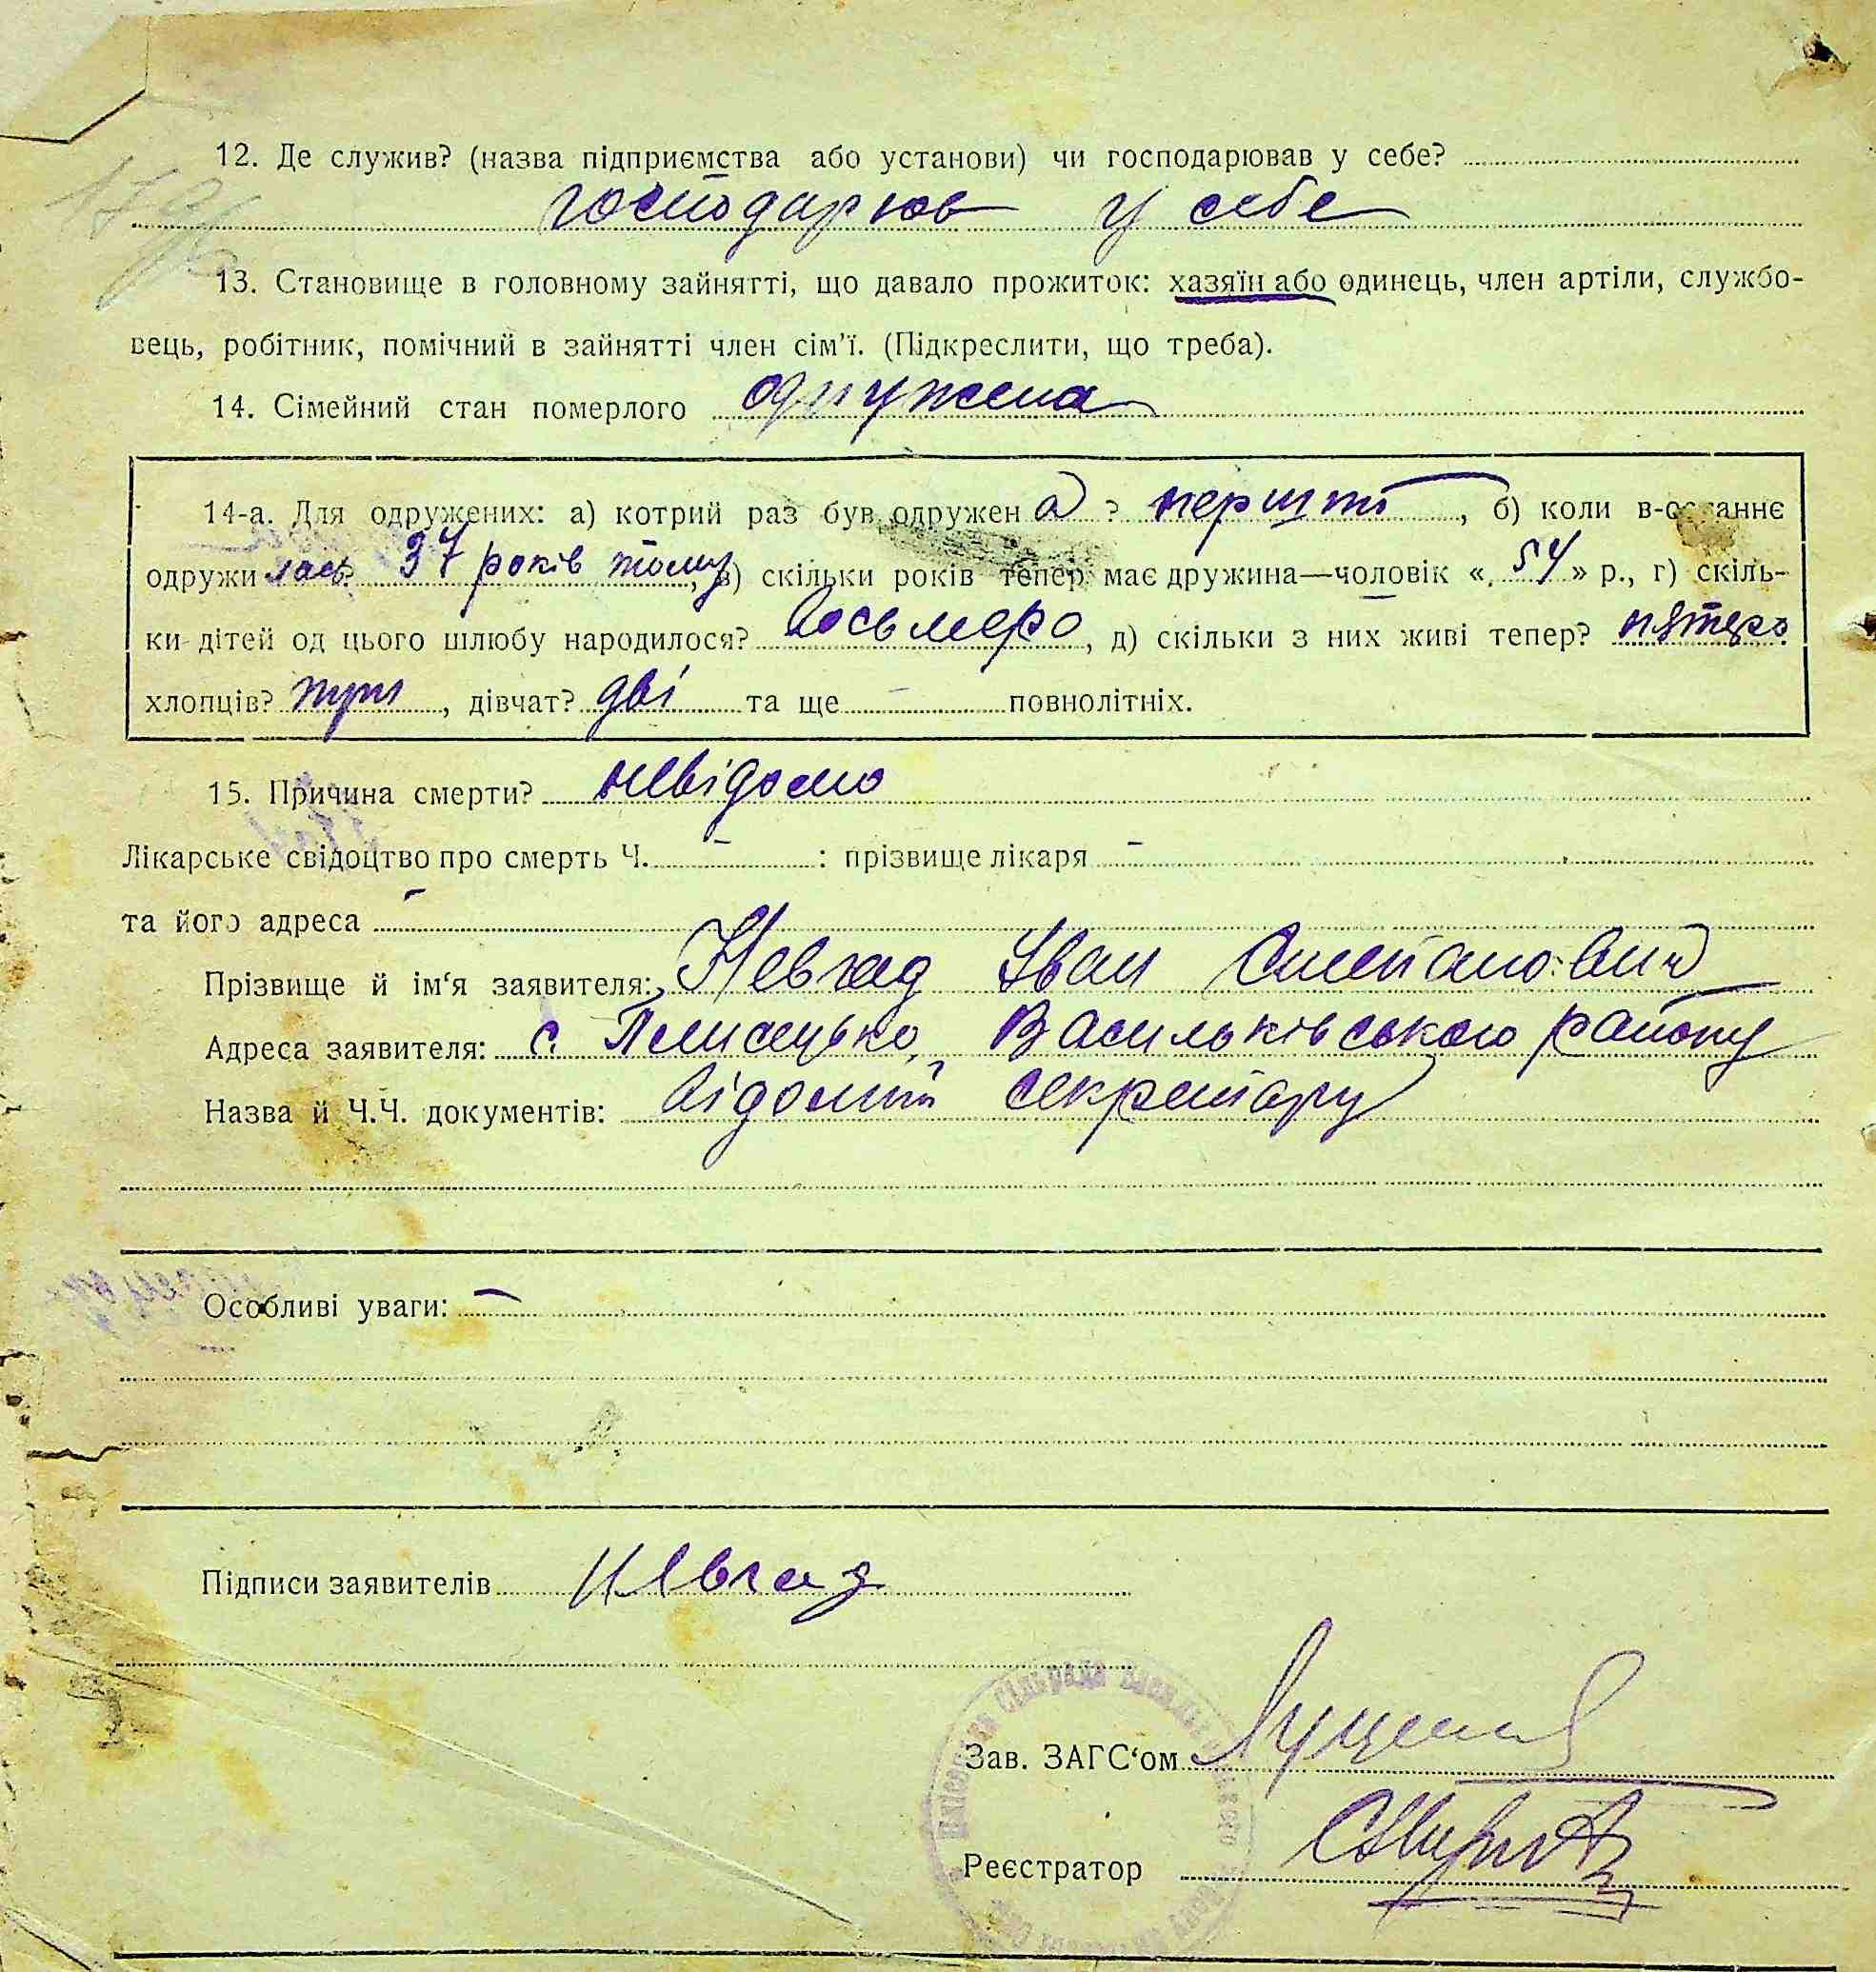 12. Де служив? (назва підприємства або установи) чи господарював у себе?
господарюв у себе
13. Становище в головному зайнятті, що давало прожиток: хазяїн або одинець, член артіли, службо-
вець, робітник, помічний в зайнятті член сім'ї. (Підкреслити, що треба).
14. Сімейний стан померлого одружена
14-а. Для одружених: а) котрий раз був одружен а ? перший, б) коли в-останнє
одружилась? 37 років тому, в) скільки років тепер має дружина—чоловік «54» р., г) скіль-
ки дітей од цього шлюбу народилося? восьмеро, д) скільки з них живі тепер? пятеро
хлопців? три, дівчат? дві та ще – повнолітніх.
15. Причина смерти? невідомо
Лікарське свідоцтво про смерть Ч. – : прізвище лікаря –
та його адреса –
Прізвище й ім‘я заявителя: Невгад Іван Степанович
Адреса заявителя: с. Плисецько, Васильківського району
Назва й Ч.Ч. документів: відомий секретару
Особливі уваги: –
Підписи заявителів Невгад
Зав. ЗАГС‘ом
Реєстратор